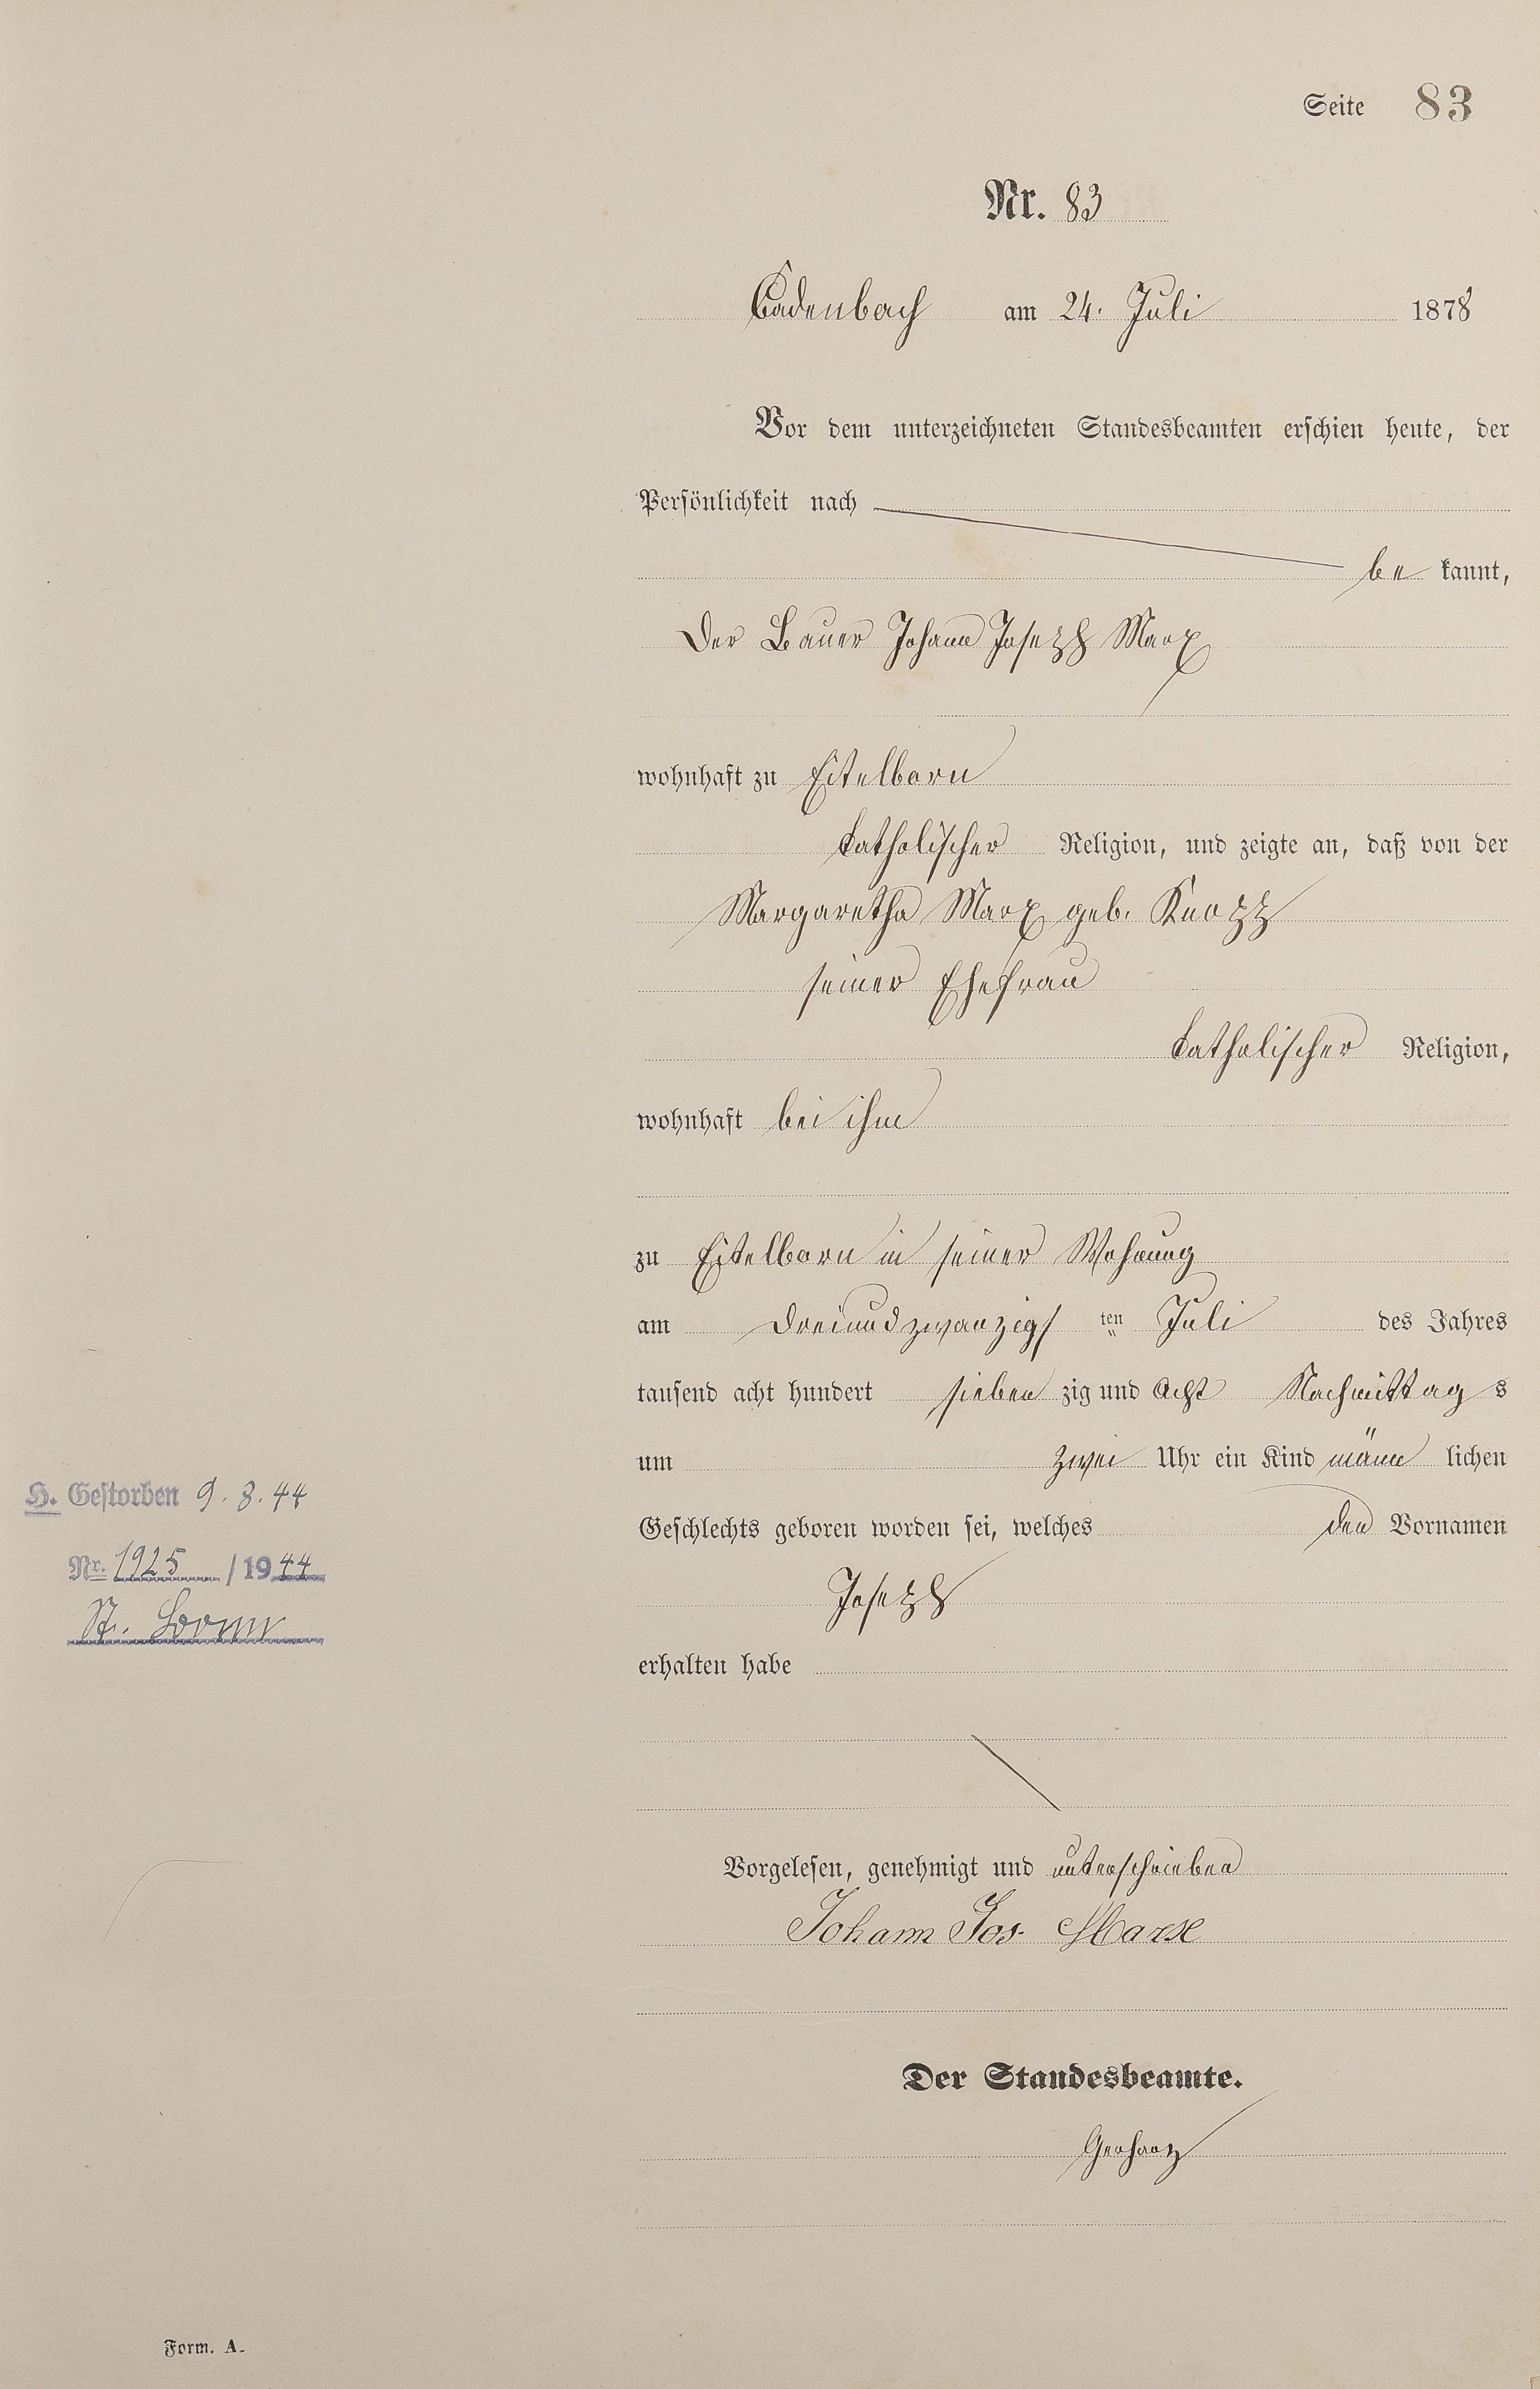 Seite 83
Nr. 83
Cadenbach am 24. Juli 1878
Vor dem unterzeichneten Standesbeamten erschien heute, der
Persönlichkeit nach
be kannt,
Der Bauer Johann Joseph Marx
wohnhaft zu Eitelborn
katholischer Religion, und zeigte an, daß von der
Margaretha Marx geb. Knopp
seiner Ehefrau
katholischer Religion,
wohnhaft bei ihm
zu Eitelborn in seiner Wohnung
am dreiundzwanzigs ten Juli des Jahres
tausend acht hundert sieben zig und acht Nachmittag s
um zwei Uhr ein Kind männ lichen
H. Gestorben 9. 3. 44
Geschlechts geboren worden sei, welches den Vornamen
Nr. 1925 / 1944
Joseph
St. Bonn
erhalten habe
Vorgelesen, genehmigt und unterschrieben
Johann Jos. Marx
Der Standesbeamte.
Gerharz
Form. A.